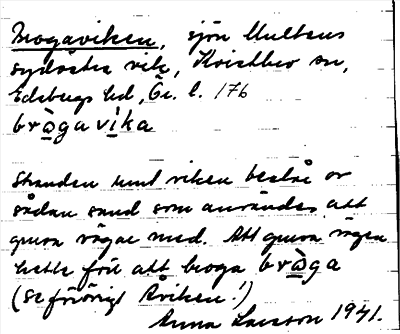 Brogaviken, sjön Multens
sydöstra vik, Kvistbro sn,
Edsbergs hd, Ör. l. 176
bråga vika
Stranden runt viken består av
sådan sand som användes att
grusa vägar med. Att grusa vägen
hette förr att broga bråga
(Se förövrigt Åviken!)
Anna Larsson 1941.